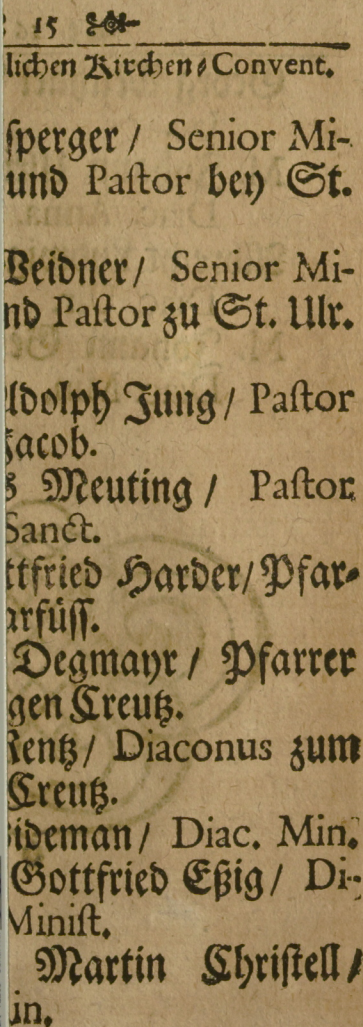 15
lichen Kirchen-Convent.
sperger / Senior Mi-
und Pastor bey St.
Weidner / Senior Mi-
nd Pastor zu St. Ulr.
Adolph Jung / Pastor
Jacob.
s Meuting / Pastor
Sanct.
ttfried Harder / Pfar-
arfüss.
Degmayr / Pfarrer
gen Creutz.
Rentz / Diaconus zum
Creutz.
ideman / Diac. Min.
Gottfried Eßig / Di-
Minist.
Martin Christell /
in.